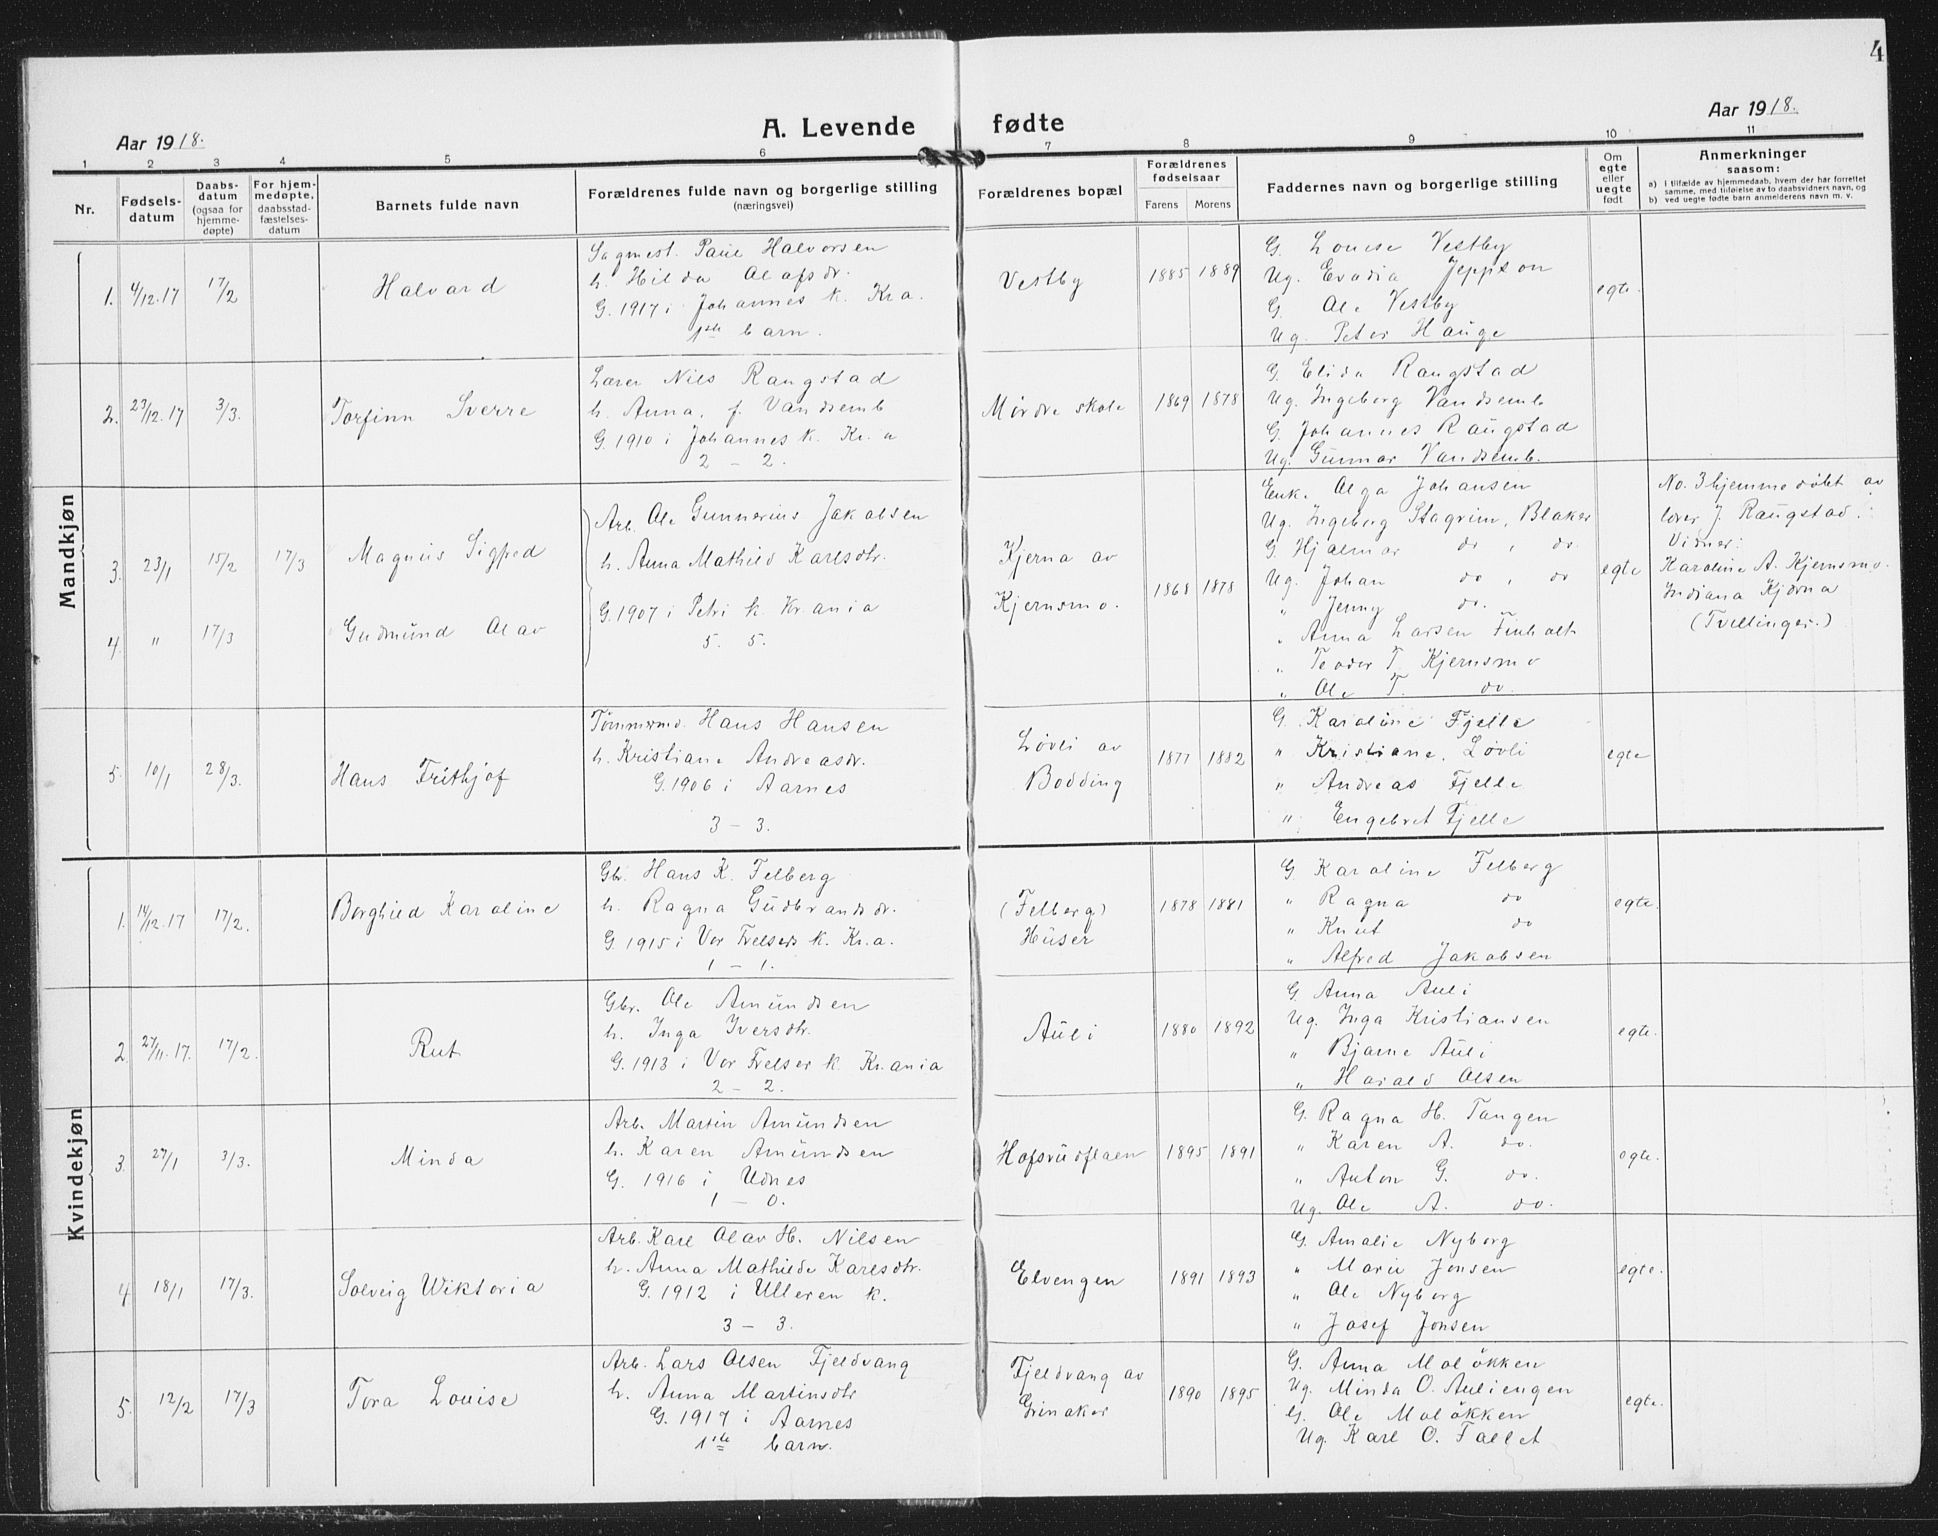 4
Aar 1918.
A. Levende fødte
Aar 1918.
1 2 3 4 5 6 7 8 9 10 11
Nr.
Fødselsdatum
Daabsdatum (ogsaa for hjemmedøpte)
For hjemmedøpte, daabsstadfæstelsesdatum
Barnets fulde navn
Forældrenes fulde navn og borgerlige stilling (næringsvei)
Forældrenes bopæl
Forældrenes fødselsaar
Farens Morens
Faddernes navn og borgerlige stilling
Om egte eller uegte født
Anmerkninger saasom:
a) i tilfælde av hjemmedaab, hvem der har forrettet samme, med tilføielse av to daabsvidners navn, og
b) ved uegte fødte barn anmelderens navn m. v.
Mandkjøn
1. 4/12.17 17/2 Halvard
Sagmest. Paul Halvorsen
h. Hilda Olafsdr.
G. 1917 i Johannes k. Kr.a.
1ste barn.
Vestby 1885 1889
G. Louise Vestby
Ug. Evadia Jeppson
G. Ole Vestby
Ug. Peter Hauge
egte.
2. 23/12.17 3/3. Torfinn Sverre
Lærer Nils Raugstad
h. Anna, f. Vandsemb
G. 1910 i Johannes k. Kr.a
2 – 2.
Mørdre skole 1869 1878
G. Elida Raugstad
Ug. Ingeborg Vandsemb
G. Johannes Raugstad
Ug. Gunnar Vandsemb.
3. 23/1 15/2 17/3 Magnus Sigfred
4. " 17/3 Gudmund Olav
Arb. Ole Gunnerius Jakobsen
h. Anna Mathild Karlsdtr.
G. 1907 i Petri k. Kr.ania
5. 5.
Kjerna av
Kjernsmo. 1868 1878
Enk. Olga Johansen
Ug. Ingeborg Stagrim, Blaker
G. Hjalmar do , do.
Ug. Johan do , do
" Jenny do.
" Anna Larsen Finholt
" Teodor T. Kjernsmo
" Ole T. do.
egte
No. 3 hjemmedøbt av
lærer J. Raugstad.
Vidner:
Karoline A. Kjernsmo.
Indiana Kjerna
(Tvillinger.)
5. 10/1 28/3. Hans Frithjof
Tømmermd. Hans Hansen
h. Kristiane Andreasdr.
G. 1906 i Aarnes
3 – 3.
Løvli av
Bodding 1877 1882
G. Karoline Fjelle
" Kristiane Løvli
" Andreas Fjelle
" Engebret Fjelle
egte
Kvindekjøn
1. 14/12.17 17/2. Borghild Karoline
Gbr. Hans K. Felberg
h. Ragna Gudbrandsdr.
G. 1915 i Vor Frelsers k. Kr.a.
1 – 1.
(Felberg)
Huser 1878 1881
G. Karoline Felberg
" Ragna do
" Knut do
" Alfred Jakobsen
egte.
2. 27/11.17. 17/2. Rut
Gbr. Ole Amundsen
h. Inga Iversdtr.
G. 1913 i Vor Frelser k. Kr.ania
2 – 2.
Auli 1880 1892
G. Anna Auli
Ug. Inga Kristiansen
" Bjarne Auli
" Harald Olsen
egte.
3. 27/1 3/3. Minda
Arb. Martin Amundsen
h. Karen Amundsen
G. 1916 i Udnes
1 – 0.
Hofsrudflaen 1895 1891
G. Ragna H. Tangen
" Karen A. do.
" Anton G. do.
Ug. Ole A. do.
egte.
4 18/1 17/3. Solveig Wiktoria
Arb. Karl Olav H. Nilsen
h. Anna Mathilde Karlsdtr.
G. 1912 i Ulleren k.
3 – 3.
Elvengen 1891 1893
G. Amalie Nyborg
" Marie Jonsen
" Ole Nyborg
" Josef Jonsen
egte.
5. 12/2 17/3 Tora Louise
Arb. Lars Olsen Fjeldvang
h. Anna Martinsdtr
G. 1917 i Aarnes
1ste barn.
Fjeldvang av
Grinaker 1890 1895
G. Anna Moløkken
Ug. Minda O. Auliengen
G. Ole Moløkken
Ug. Karl O. Fallet
egte.